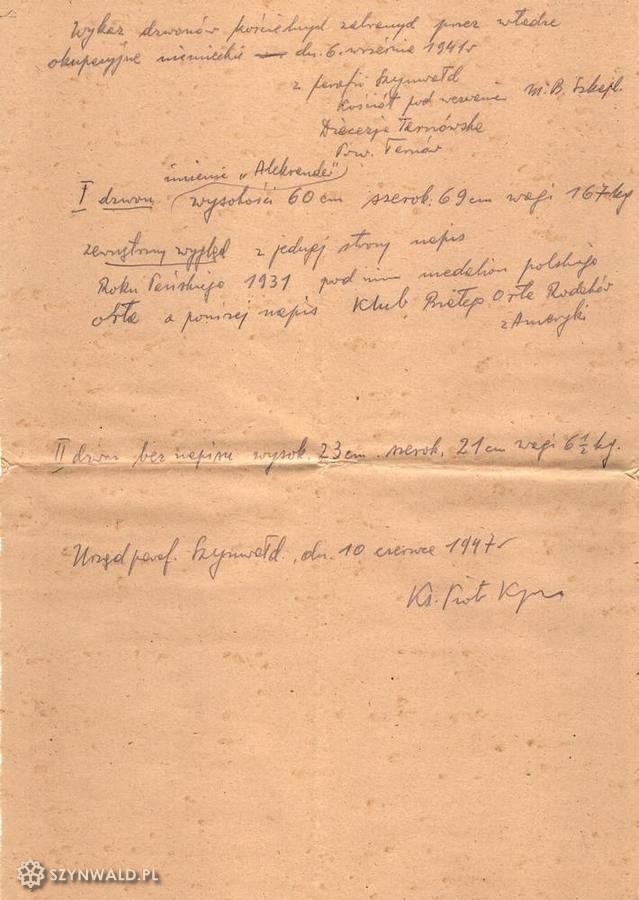 Wykaz dzwonów kościelnych zabranych przez władze
okupacyjne niemieckie — dn. 6. września 1941 r
z parafii Szynwałd
Kościół pod wezwaniem M.B. Szkapl.
Diecezja Tarnowska
Pow. Tarnów
imienie „Aleksander”
I dzwon wysokości 60 cm szerok. 69 cm wagi 167 kg
zewnętrzny wygląd z jednej strony napis
Roku Pańskiego 1931 pod nim medalion polskiego
orła a poniżej napis Klub Białego Orła Rodaków
z Ameryki
II dzwon bez napisu wysok. 23 cm. szerok. 21 cm wagi 6 1/2 kg.
Urząd paraf. Szynwałd. dn. 10 czerwca 1947 r
Ks. Piotr
SZYNWALD.PL